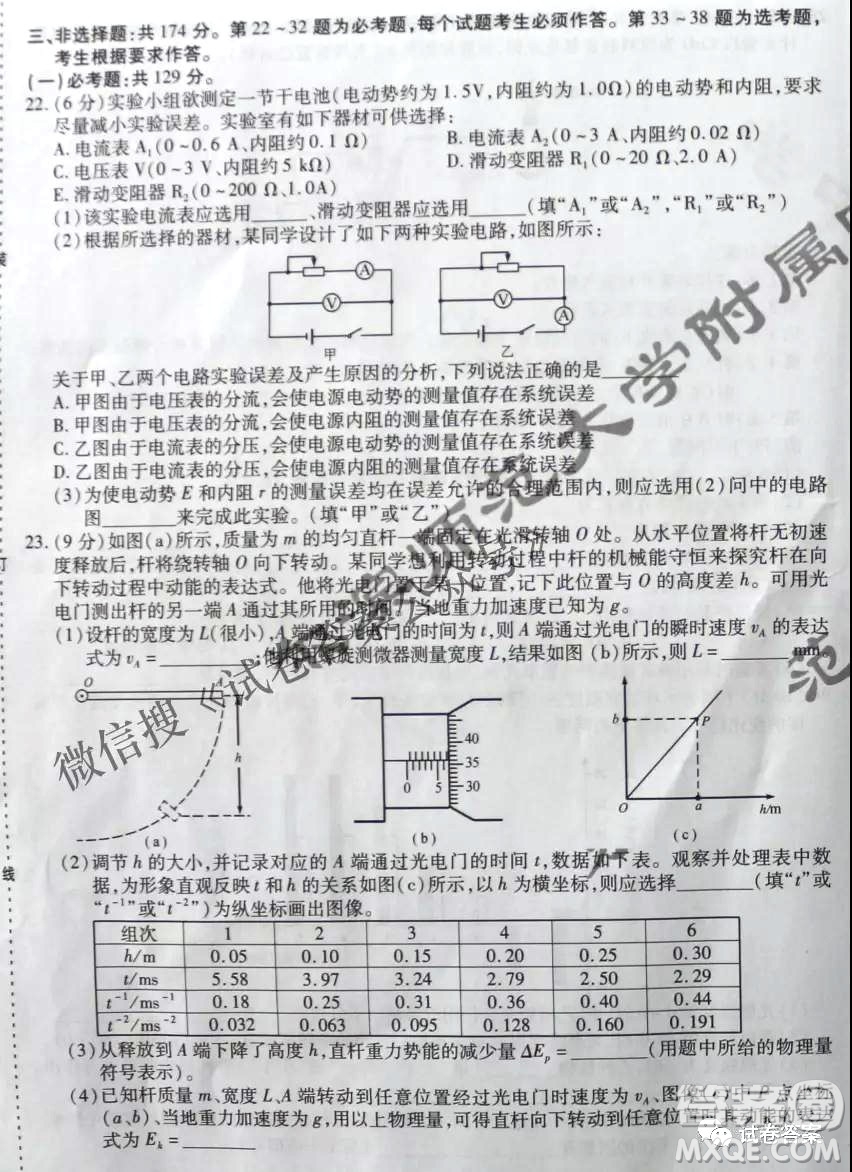 三、非选择题:共 174 分。第 22～32 题为必考题,每个试题考生必须作答。第 33～38 题为选考题,
考生根据要求作答。
(一)必考题:共 129 分。
22.(6 分)实验小组欲测定一节干电池(电动势约为 1.5V,内阻约为 1.0Ω)的电动势和内阻,要求
尽量减小实验误差。实验室有如下器材可供选择:
A. 电流表 A₁(0～0.6 A、内阻约 0.1 Ω)
B. 电流表 A₂(0～3 A、内阻约 0.02 Ω)
C. 电压表 V(0～3 V、内阻约 5 kΩ)
D. 滑动变阻器 R₁(0～20 Ω、2.0 A)
E. 滑动变阻器 R₂(0～200 Ω、1.0A)
(1)该实验电流表应选用______、滑动变阻器应选用______(填“A₁”或“A₂”,“R₁”或“R₂”)
(2)根据所选择的器材,某同学设计了如下两种实验电路,如图所示:
A
V
甲
V
A
乙
关于甲、乙两个电路实验误差及产生原因的分析,下列说法正确的是______
A. 甲图由于电压表的分流,会使电源电动势的测量值存在系统误差
B. 甲图由于电压表的分流,会使电源内阻的测量值存在系统误差
C. 乙图由于电流表的分压,会使电源电动势的测量值存在系统误差
D. 乙图由于电流表的分压,会使电源内阻的测量值存在系统误差
(3)为使电动势 E 和内阻 r 的测量误差均在误差允许的合理范围内,则应选用(2)问中的电路
图______来完成此实验。(填“甲”或“乙”)
23.(9 分)如图(a)所示,质量为 m 的均匀直杆一端固定在光滑转轴 O 处。从水平位置将杆无初速
度释放后,杆将绕转轴 O 向下转动。某同学想利用转动过程中杆的机械能守恒来探究杆在向
下转动过程中动能的表达式。他将光电门置于某一位置,记下此位置与 O 的高度差 h。可用光
电门测出杆的另一端 A 通过其所用的时间。当地重力加速度已知为 g。
(1)设杆的宽度为 L(很小),A 端通过光电门的时间为 t,则 A 端通过光电门的瞬时速度 v_A 的表达
式为 v_A = ______;他利用螺旋测微器测量宽度 L,结果如图 (b)所示,则 L = ______ mm。
O
A
h
(a)
0 5
40
35
30
(b)
b
P
O
a
h/m
(c)
(2)调节 h 的大小,并记录对应的 A 端通过光电门的时间 t,数据如下表。观察并处理表中数
据,为形象直观反映 t 和 h 的关系如图(c)所示,以 h 为横坐标,则应选择______(填“t”或
“t⁻¹”或“t⁻²”)为纵坐标画出图像。
组次 1 2 3 4 5 6
h/m 0.05 0.10 0.15 0.20 0.25 0.30
t/ms 5.58 3.97 3.24 2.79 2.50 2.29
t⁻¹/ms⁻¹ 0.18 0.25 0.31 0.36 0.40 0.44
t⁻²/ms⁻² 0.032 0.063 0.095 0.128 0.160 0.191
(3)从释放到 A 端下降了高度 h,直杆重力势能的减少量 ΔE_p = ______(用题中所给的物理量
符号表示)。
(4)已知杆质量 m、宽度 L、A 端转动到任意位置经过光电门时速度为 v_A、图像(c)中 P 点坐标
(a、b)、当地重力加速度为 g,用以上物理量,可得直杆向下转动到任意位置时其动能的表达
式为 E_k = ______
装
订
线
微信搜《试卷答案公众号》
师范大学附属
范
试卷答案
MXQE.COM